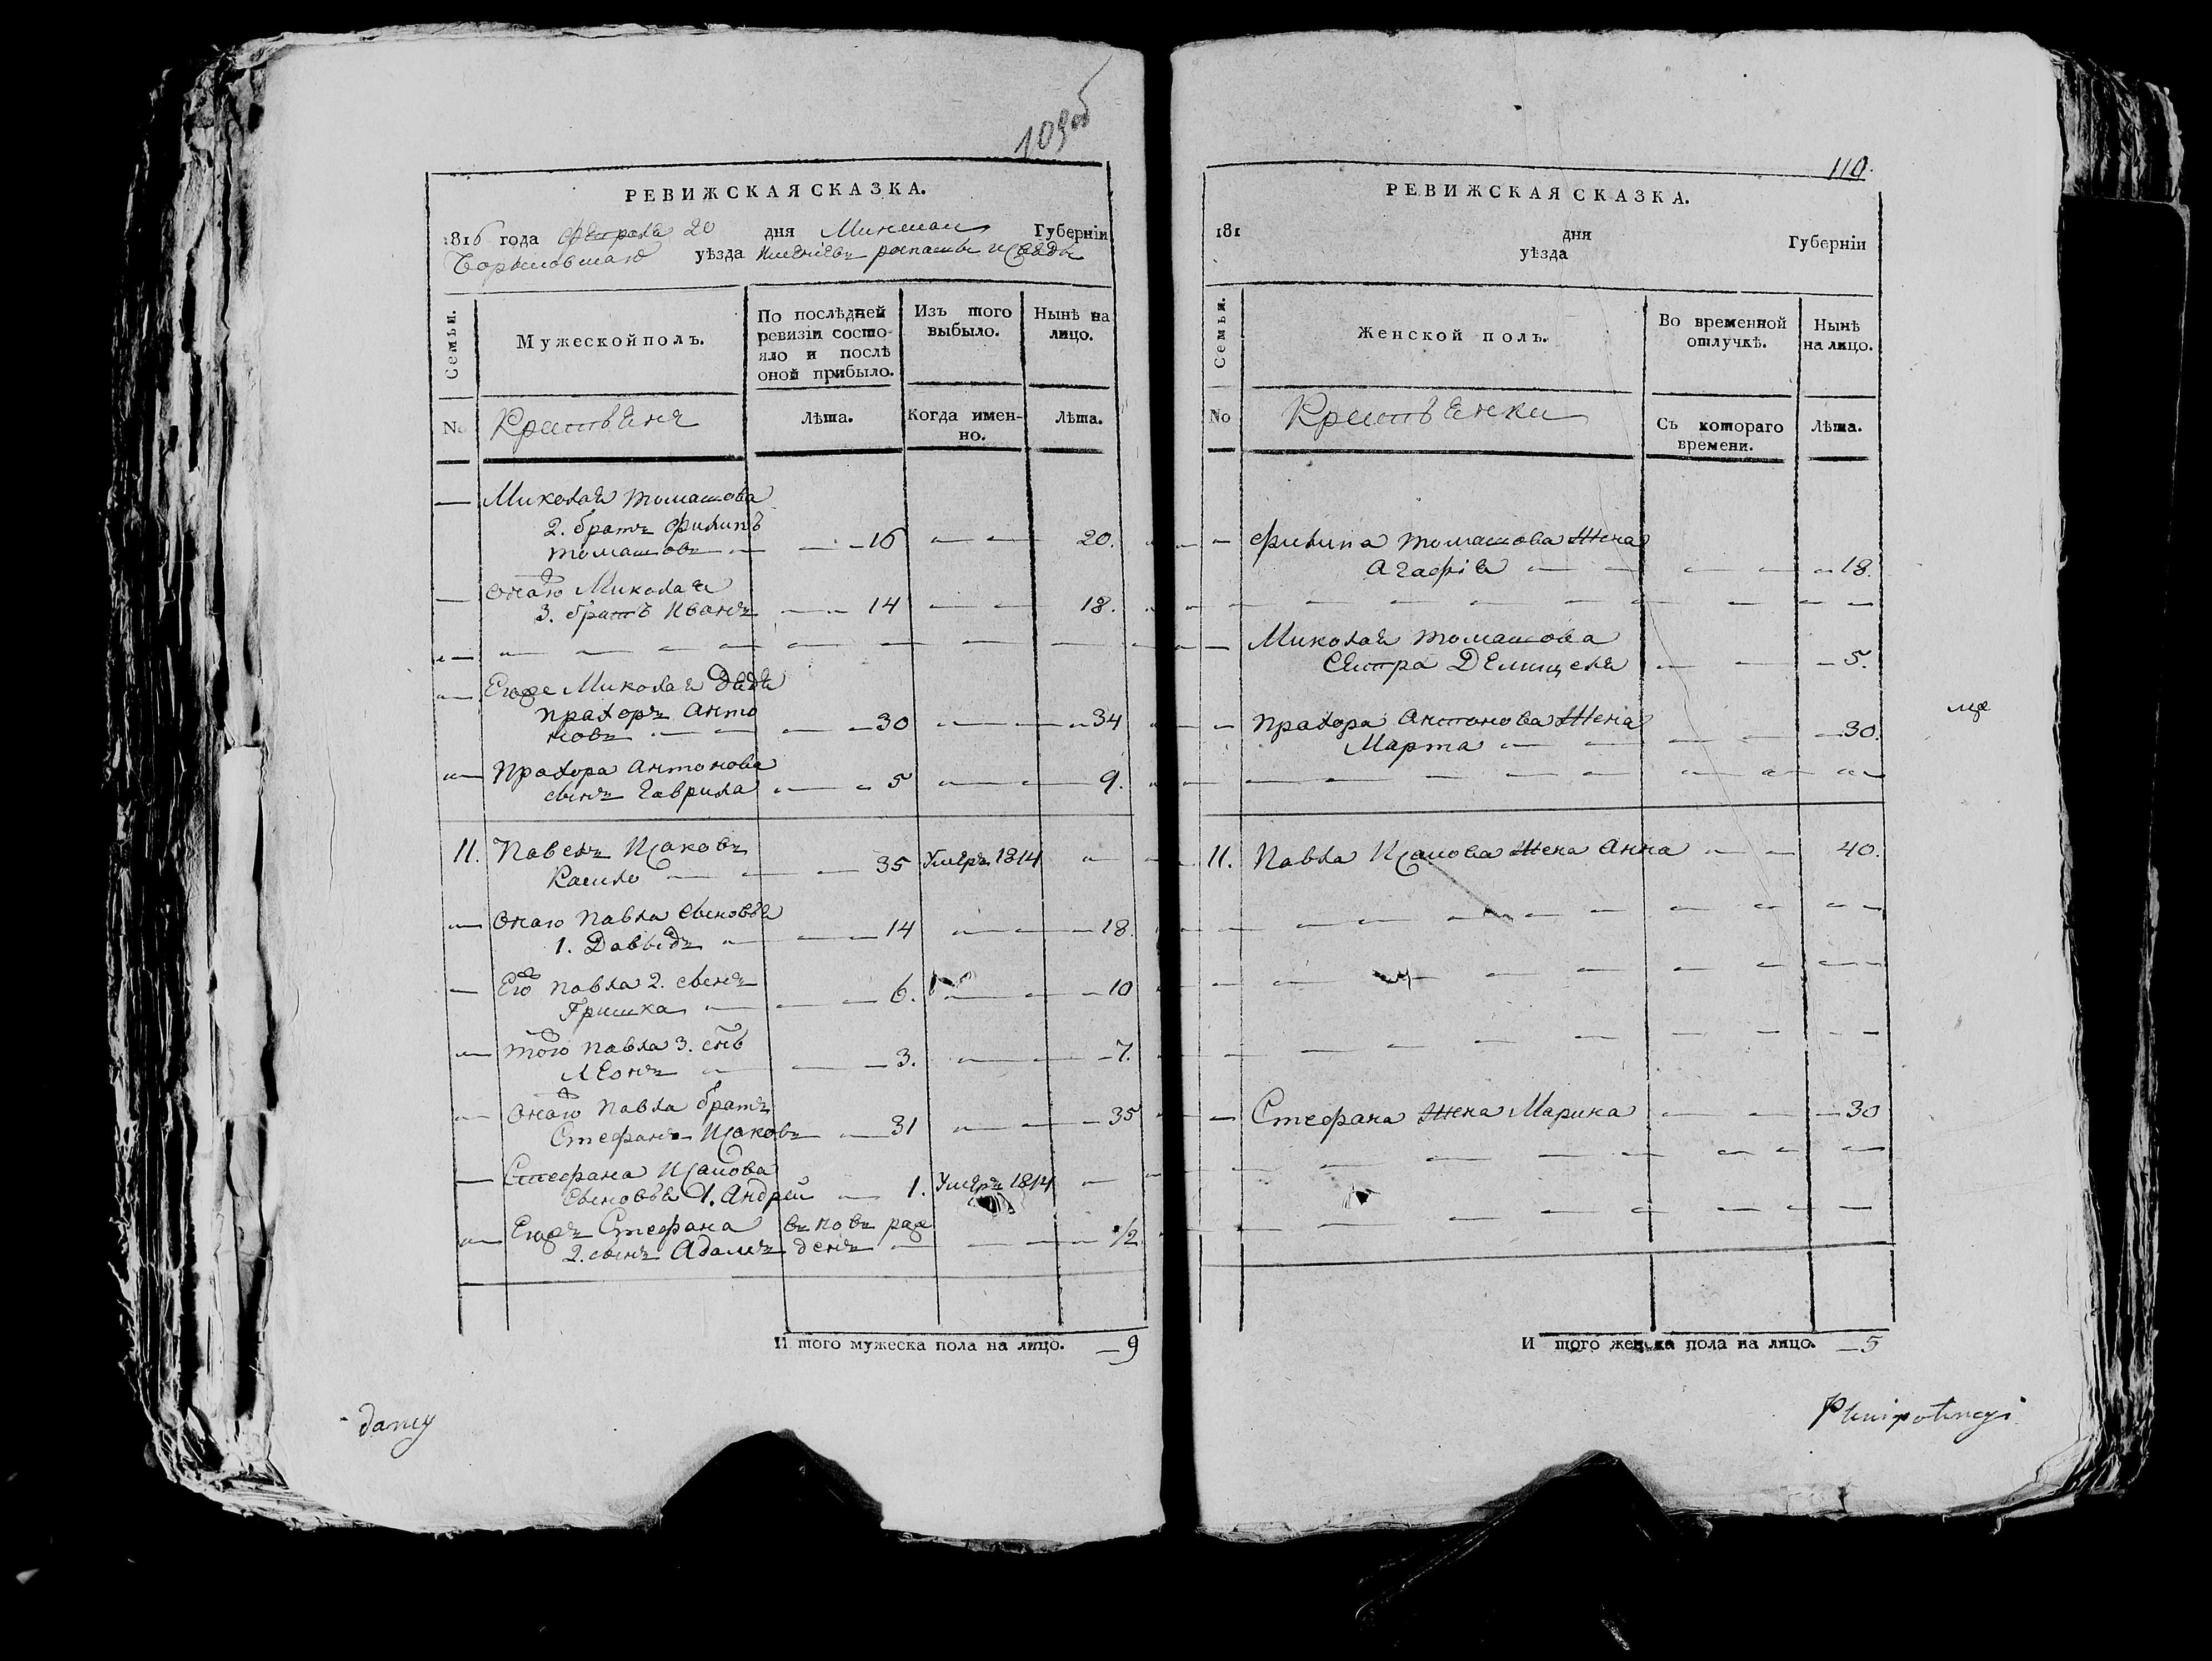 109об
РЕВИЖСКАЯ СКАЗКА.
1816 года февраля 20 дня Минской Губерніи
Борисовскаго уѣзда
Семьи.
Мужеской полъ.
По послѣдней ревизіи состо-
яло и послѣ
оной прибыло.
Изъ того
выбыло.
Нынѣ на
лицо.
No
Крестьяне
Лѣта.
Когда имен-
но.
Лѣта.
— Миколая Томашова
2. братъ Филипъ
Томашовъ — 16 — 20.
— Онаго Миколая
3. братъ Иванъ — 14 — 18.
— Егоже Миколая дядя
Прахоръ Анто
новъ — 30 — 34
— Прахора Антонова
сынъ Гаврила — 5 — 9.
11. Павелъ Исаковъ
Касило — 35 Умеръ 1814 —
— Онаго Павла сыновья
1. Давыдъ — 14 — 18.
— Его Павла 2. сынъ
Гришка — 6. — 10
— Того Павла 3. снъ
Леонъ — 3. — 7.
— Онаго Павла братъ
Стефанъ Исаковъ — 31 — 35
— Стефана Исакова
сыновья 1. Андрей — 1. Умеръ 1814 —
— Егожъ Стефана вновь раж
2. сынъ Адамъ денъ — 1/2
И того мужеска пола на лицо. — 9
110.
РЕВИЖСКАЯ СКАЗКА.
181 дня Губерніи
уѣзда
Семьи.
Женской полъ.
Во временной
отлучкѣ.
Нынѣ
на лицо.
No
Крестьянки
Съ котораго
времени.
Лѣта.
— Филипа Томашова жена
Агафія — 18.
— Миколая Томашова
сестра — 5.
— Прахора Антонова жена
Марта — 30.
11. Павла Исакова жена Анна — 40.
— Стефана жена Марина — 30
И того женска пола на лицо. — 5
Plenipotencyi